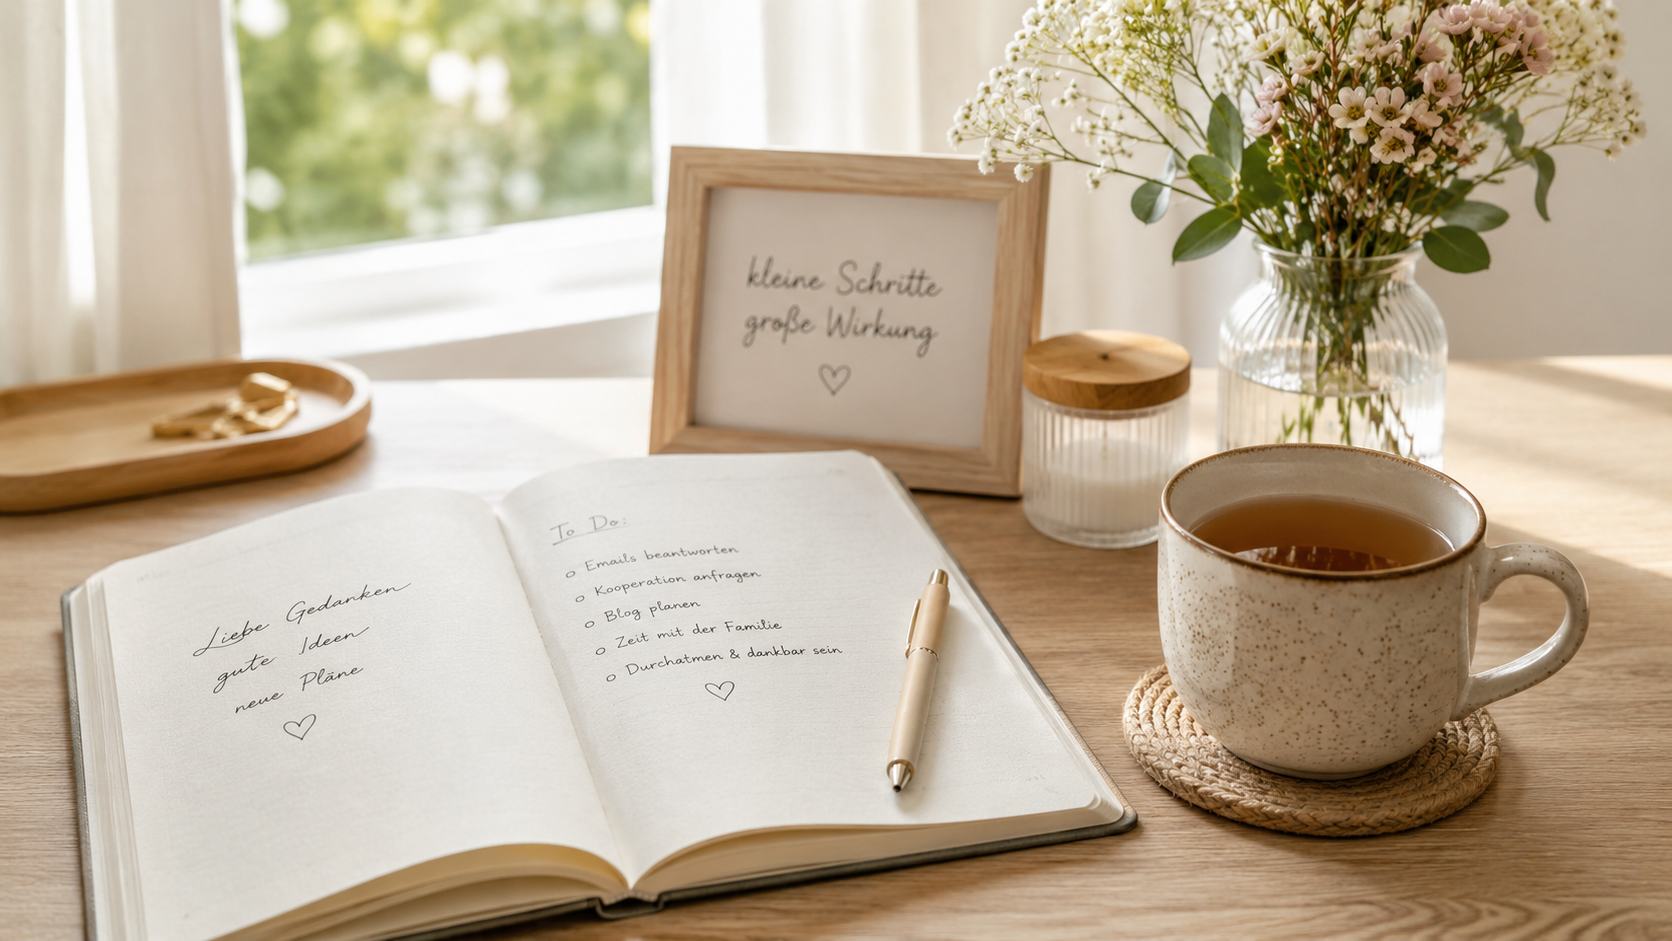 kleine Schritte
große Wirkung
Liebe Gedanken
gute Ideen
neue Pläne
To Do:
Emails beantworten
Kooperation anfragen
Blog planen
Zeit mit der Familie
Durchatmen & dankbar sein